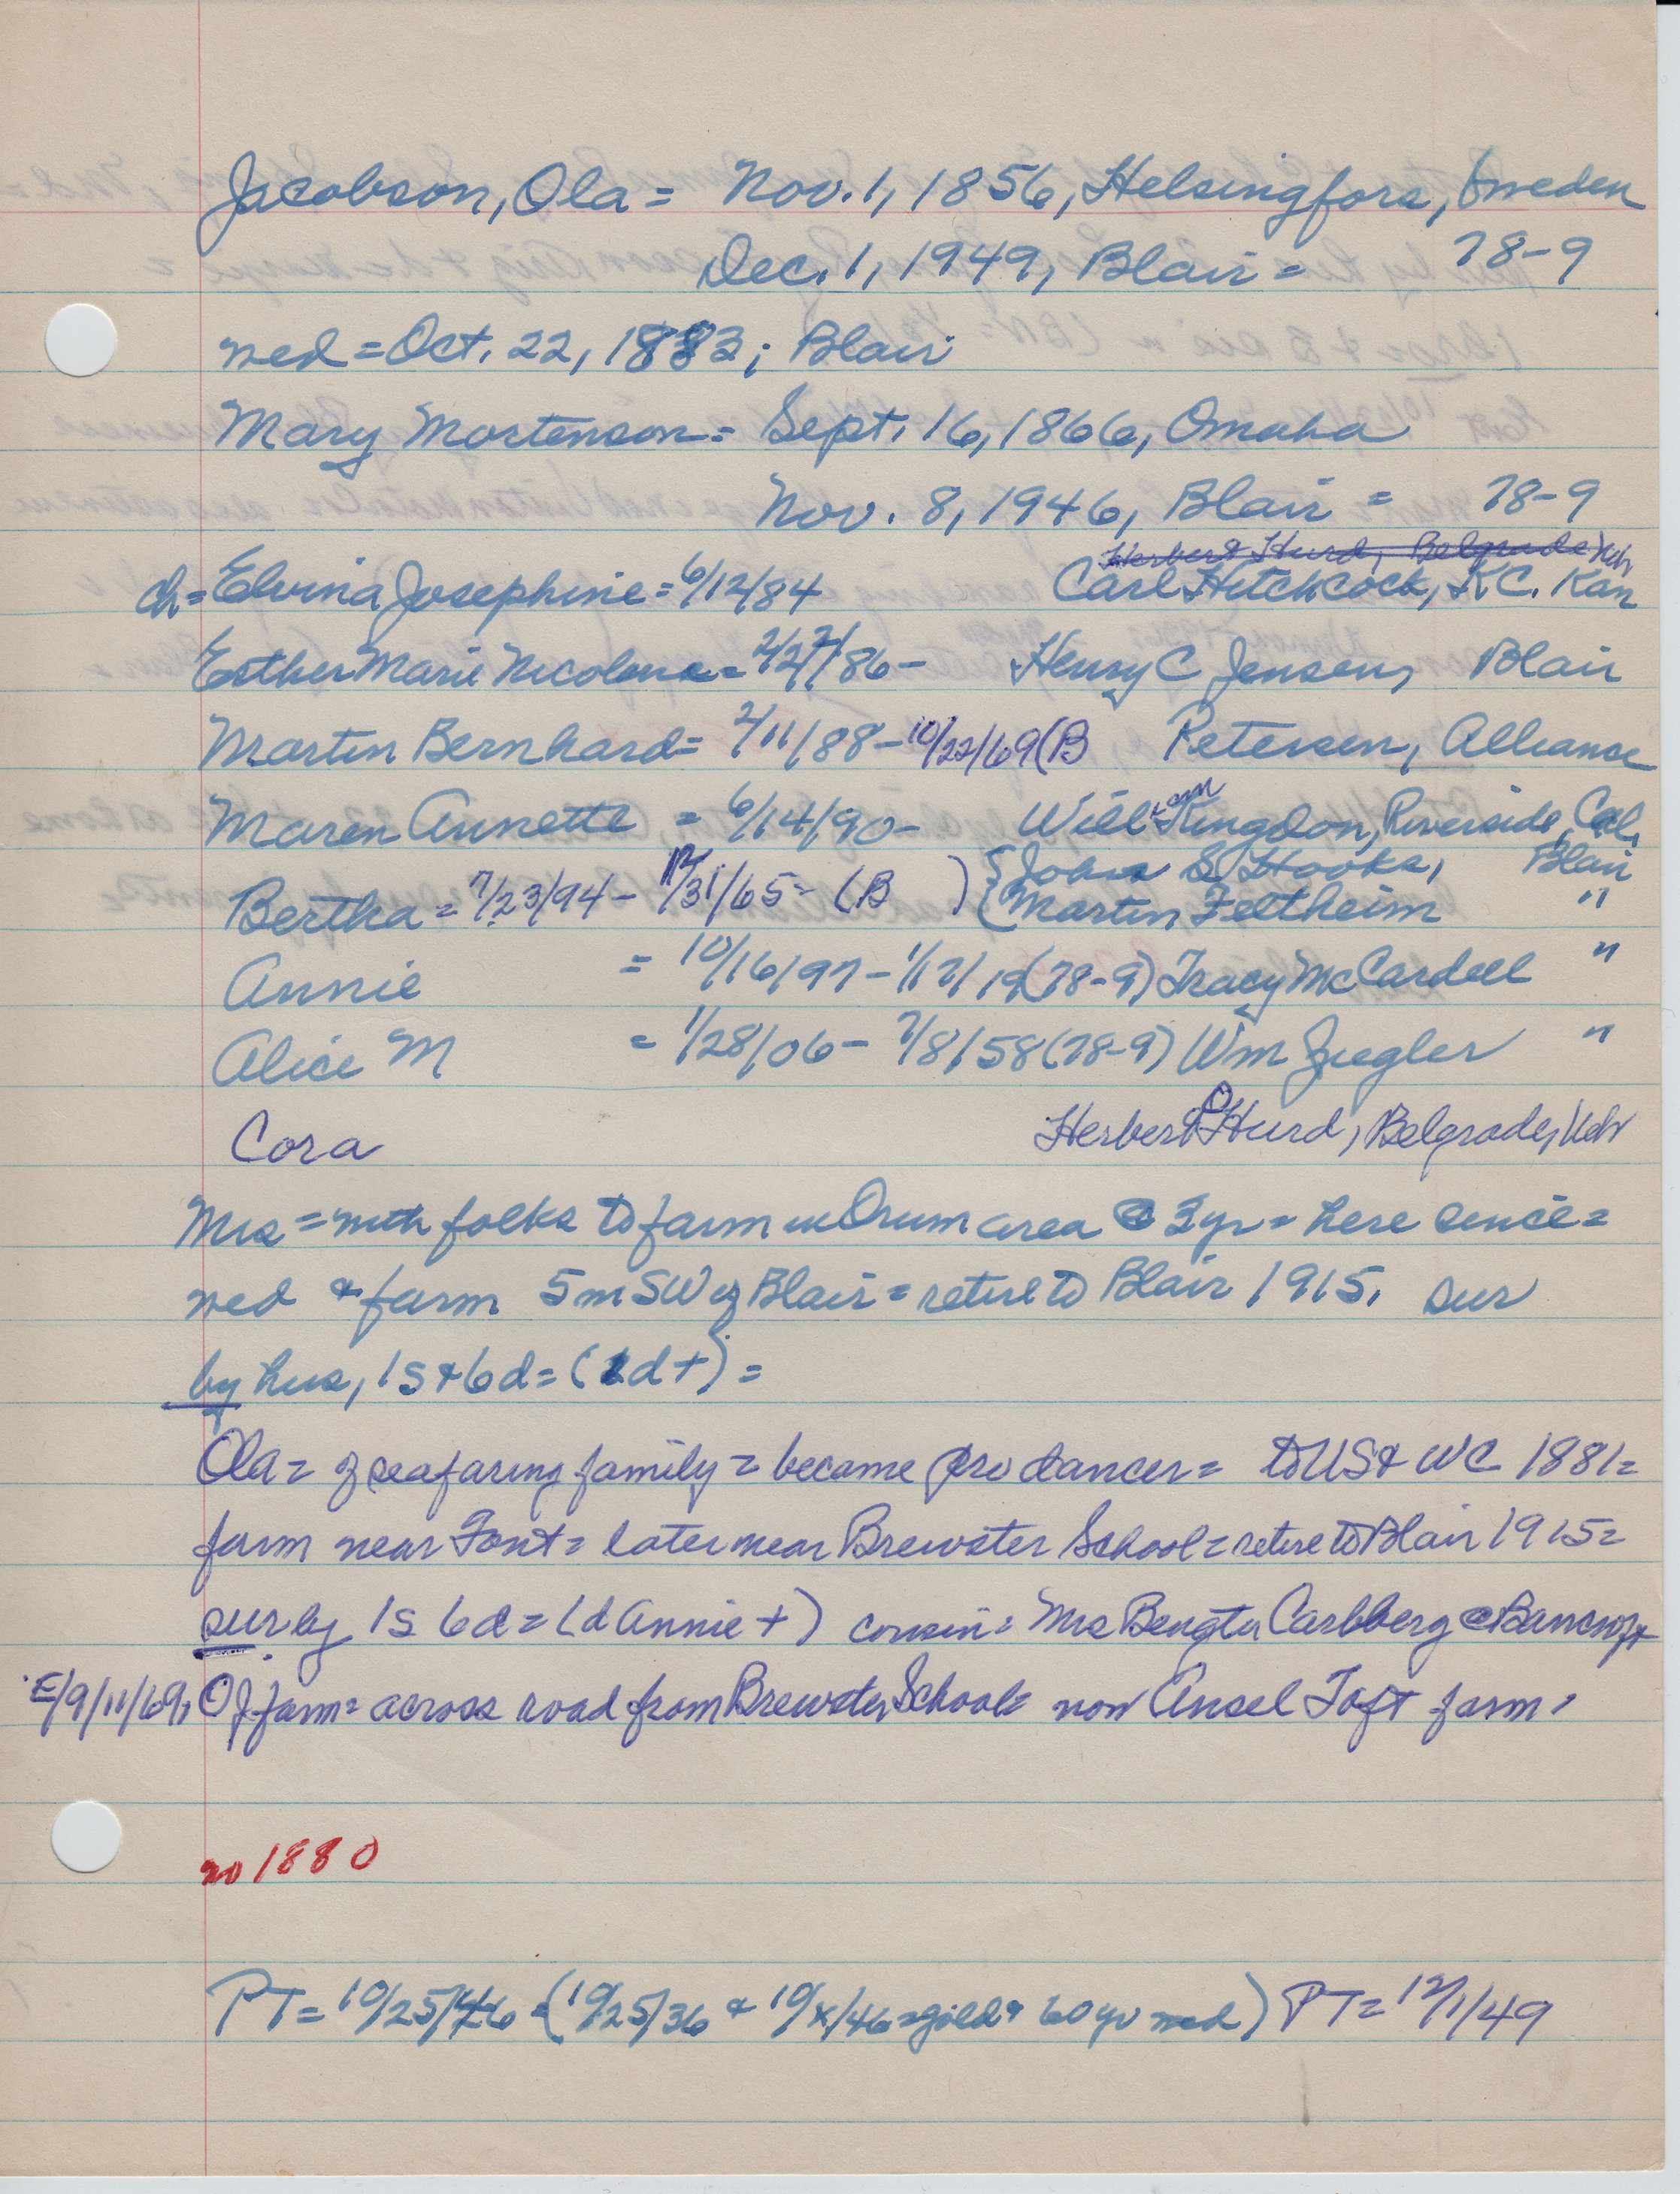 Jacobson, Ola = Nov. 1, 1856, Helsingfors, Sweden
Dec. 1, 1949, Blair = 78-9
wed = Oct. 22, 1883; Blair
Mary Mortenson = Sept. 16, 1866, Omaha
Nov. 8, 1946, Blair = 78-9
Herbert Hurd, Belgrade Neb
ch = Elvina Josephine = 6/12/84 Carl Hitchcock, KC. Kan
Esther Marie Nicolena = 2/27/86 - Henry C Jensen, Blair
Martin Bernhard = 2/11/88 - 10/22/69 (B Petersen, Alliance
Maren Annette = 6/14/90 - William Kingdon, Riverside, Cal.
Bertha = 7/23/94 - 12/31/65 = (B ) { John S Hooks, Blair
{ Martin Feltheim "
Annie = 10/16/97 - 1/17/19 (78-9) Tracy McCardell "
Alice M = 1/28/06 - 7/8/58 (78-9) Wm Ziegler "
Cora Herbert O Hurd, Belgrade, Neb
Mrs = with folks to farm in Orum area @ 3 yr = here since =
wed & farm 5 m SW of Blair = retire to Blair 1915. sur
by hus, 1 s & 6 d = (1 d +) =
Ola = of seafaring family = became pro dancer = to US & WC 1881 =
farm near Font = later near Brewster School = retire to Blair 1915 =
sur by 1 s 6 d = (d Annie +) cousin = Mrs Bengta Carlberg @ Bancroft
E/9/11/69, OJ farm = across road from Brewster School = now Ansel Toft farm =
no 1880
PT = 10/25/46 = (10/25/36 & 10/x/46 = gold & 60 yr wed) PT = 12/1/49